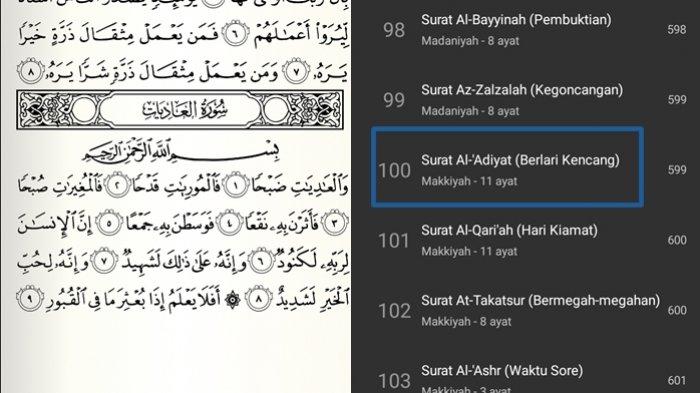 لِّيُرَوْا۟ أَعْمَٰلَهُمْ ٦ فَمَن يَعْمَلْ مِثْقَالَ ذَرَّةٍ خَيْرًا
يَرَهُۥ ٧ وَمَن يَعْمَلْ مِثْقَالَ ذَرَّةٍ شَرًّا يَرَهُۥ ٨
سُورَةُ العَادِيَاتِ
بِسْمِ ٱللَّهِ ٱلرَّحْمَٰنِ ٱلرَّحِيمِ
وَٱلْعَٰدِيَٰتِ ضَبْحًا ١ فَٱلْمُورِيَٰتِ قَدْحًا ٢ فَٱلْمُغِيرَٰتِ صُبْحًا
٣ فَأَثَرْنَ بِهِۦ نَقْعًا ٤ فَوَسَطْنَ بِهِۦ جَمْعًا ٥ إِنَّ ٱلْإِنسَٰنَ
لِرَبِّهِۦ لَكَنُودٌ ٦ وَإِنَّهُۥ عَلَىٰ ذَٰلِكَ لَشَهِيدٌ ٧ وَإِنَّهُۥ لِحُبِّ
ٱلْخَيْرِ لَشَدِيدٌ ٨ ۞ أَفَلَا يَعْلَمُ إِذَا بُعْثِرَ مَا فِى ٱلْقُبُورِ ٩
98 Surat Al-Bayyinah (Pembuktian) 598
Madaniyah - 8 ayat
99 Surat Az-Zalzalah (Kegoncangan) 599
Madaniyah - 8 ayat
100 Surat Al-'Adiyat (Berlari Kencang) 599
Makkiyah - 11 ayat
101 Surat Al-Qari'ah (Hari Kiamat) 600
Makkiyah - 11 ayat
102 Surat At-Takatsur (Bermegah-megahan) 600
Makkiyah - 8 ayat
103 Surat Al-'Ashr (Waktu Sore) 601
Makkiyah - 3 ayat